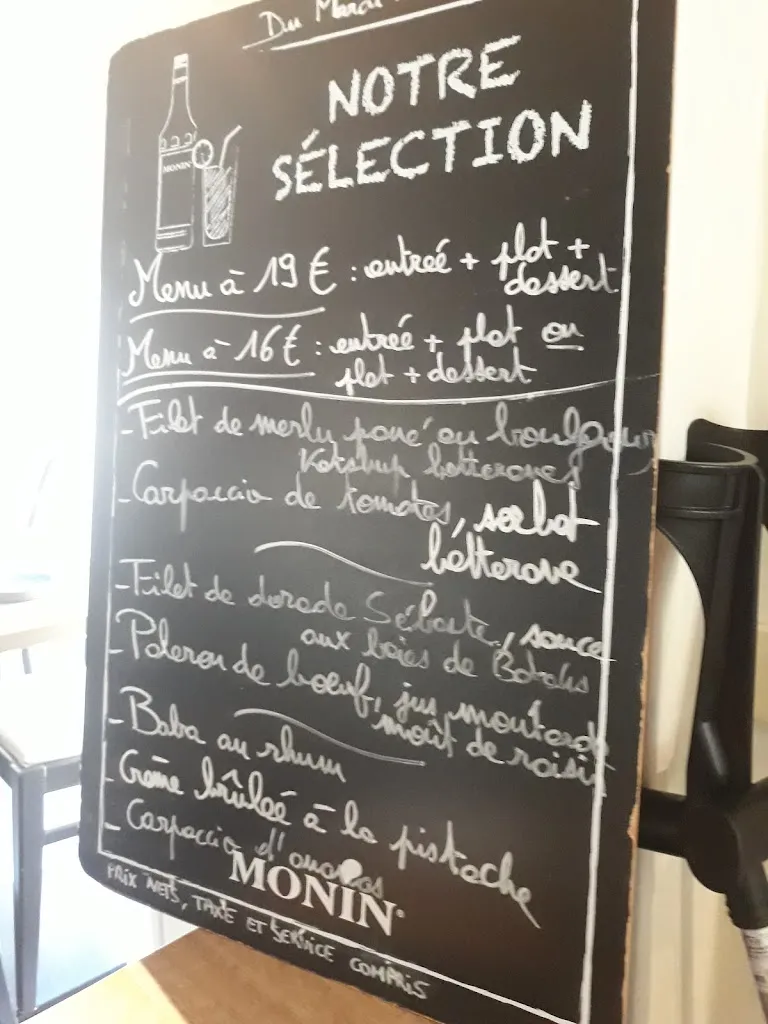 Du Mardi
NOTRE
SÉLECTION
MONIN
Menu à 19 € : entreé + plat +
dessert
Menu à 16 € : entrée + plat ou
plat + dessert
- Filet de merlu pané au boulgour
Ketchup betteraves
- Carpaccio de tomates, sorbet
betterave
- Filet de dorade Sébaste, sauce
aux baies de Batak
- Paleron de boeuf, jus moutarde
moût de raisin
- Baba au rhum
- Crème brûleé à la pistache
- Carpaccio d'ananas
MONIN
PRIX NETS, TAXE ET SERVICE COMPRIS